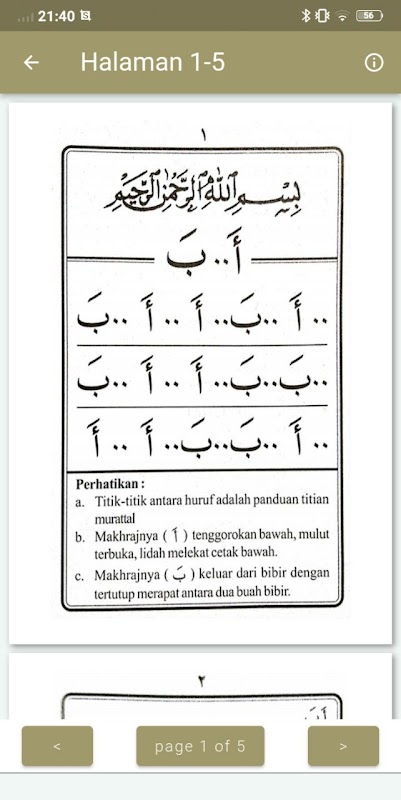 21:40
56
Halaman 1-5
١
بِسْمِ اللَّهِ الرَّحْمَٰنِ الرَّحِيْمِ
أَ .. بَ
.. أَ .. بَ .. أَ .. أَ .. بَ
.. بَ .. بَ .. أَ .. أَ .. بَ
.. أَ .. بَ .. بَ .. أَ .. أَ
Perhatikan :
a. Titik-titik antara huruf adalah panduan titian
murattal
b. Makhrajnya ( أَ ) tenggorokan bawah, mulut
terbuka, lidah melekat cetak bawah.
c. Makhrajnya ( بَ ) keluar dari bibir dengan
tertutup merapat antara dua buah bibir.
٢
< page 1 of 5 >